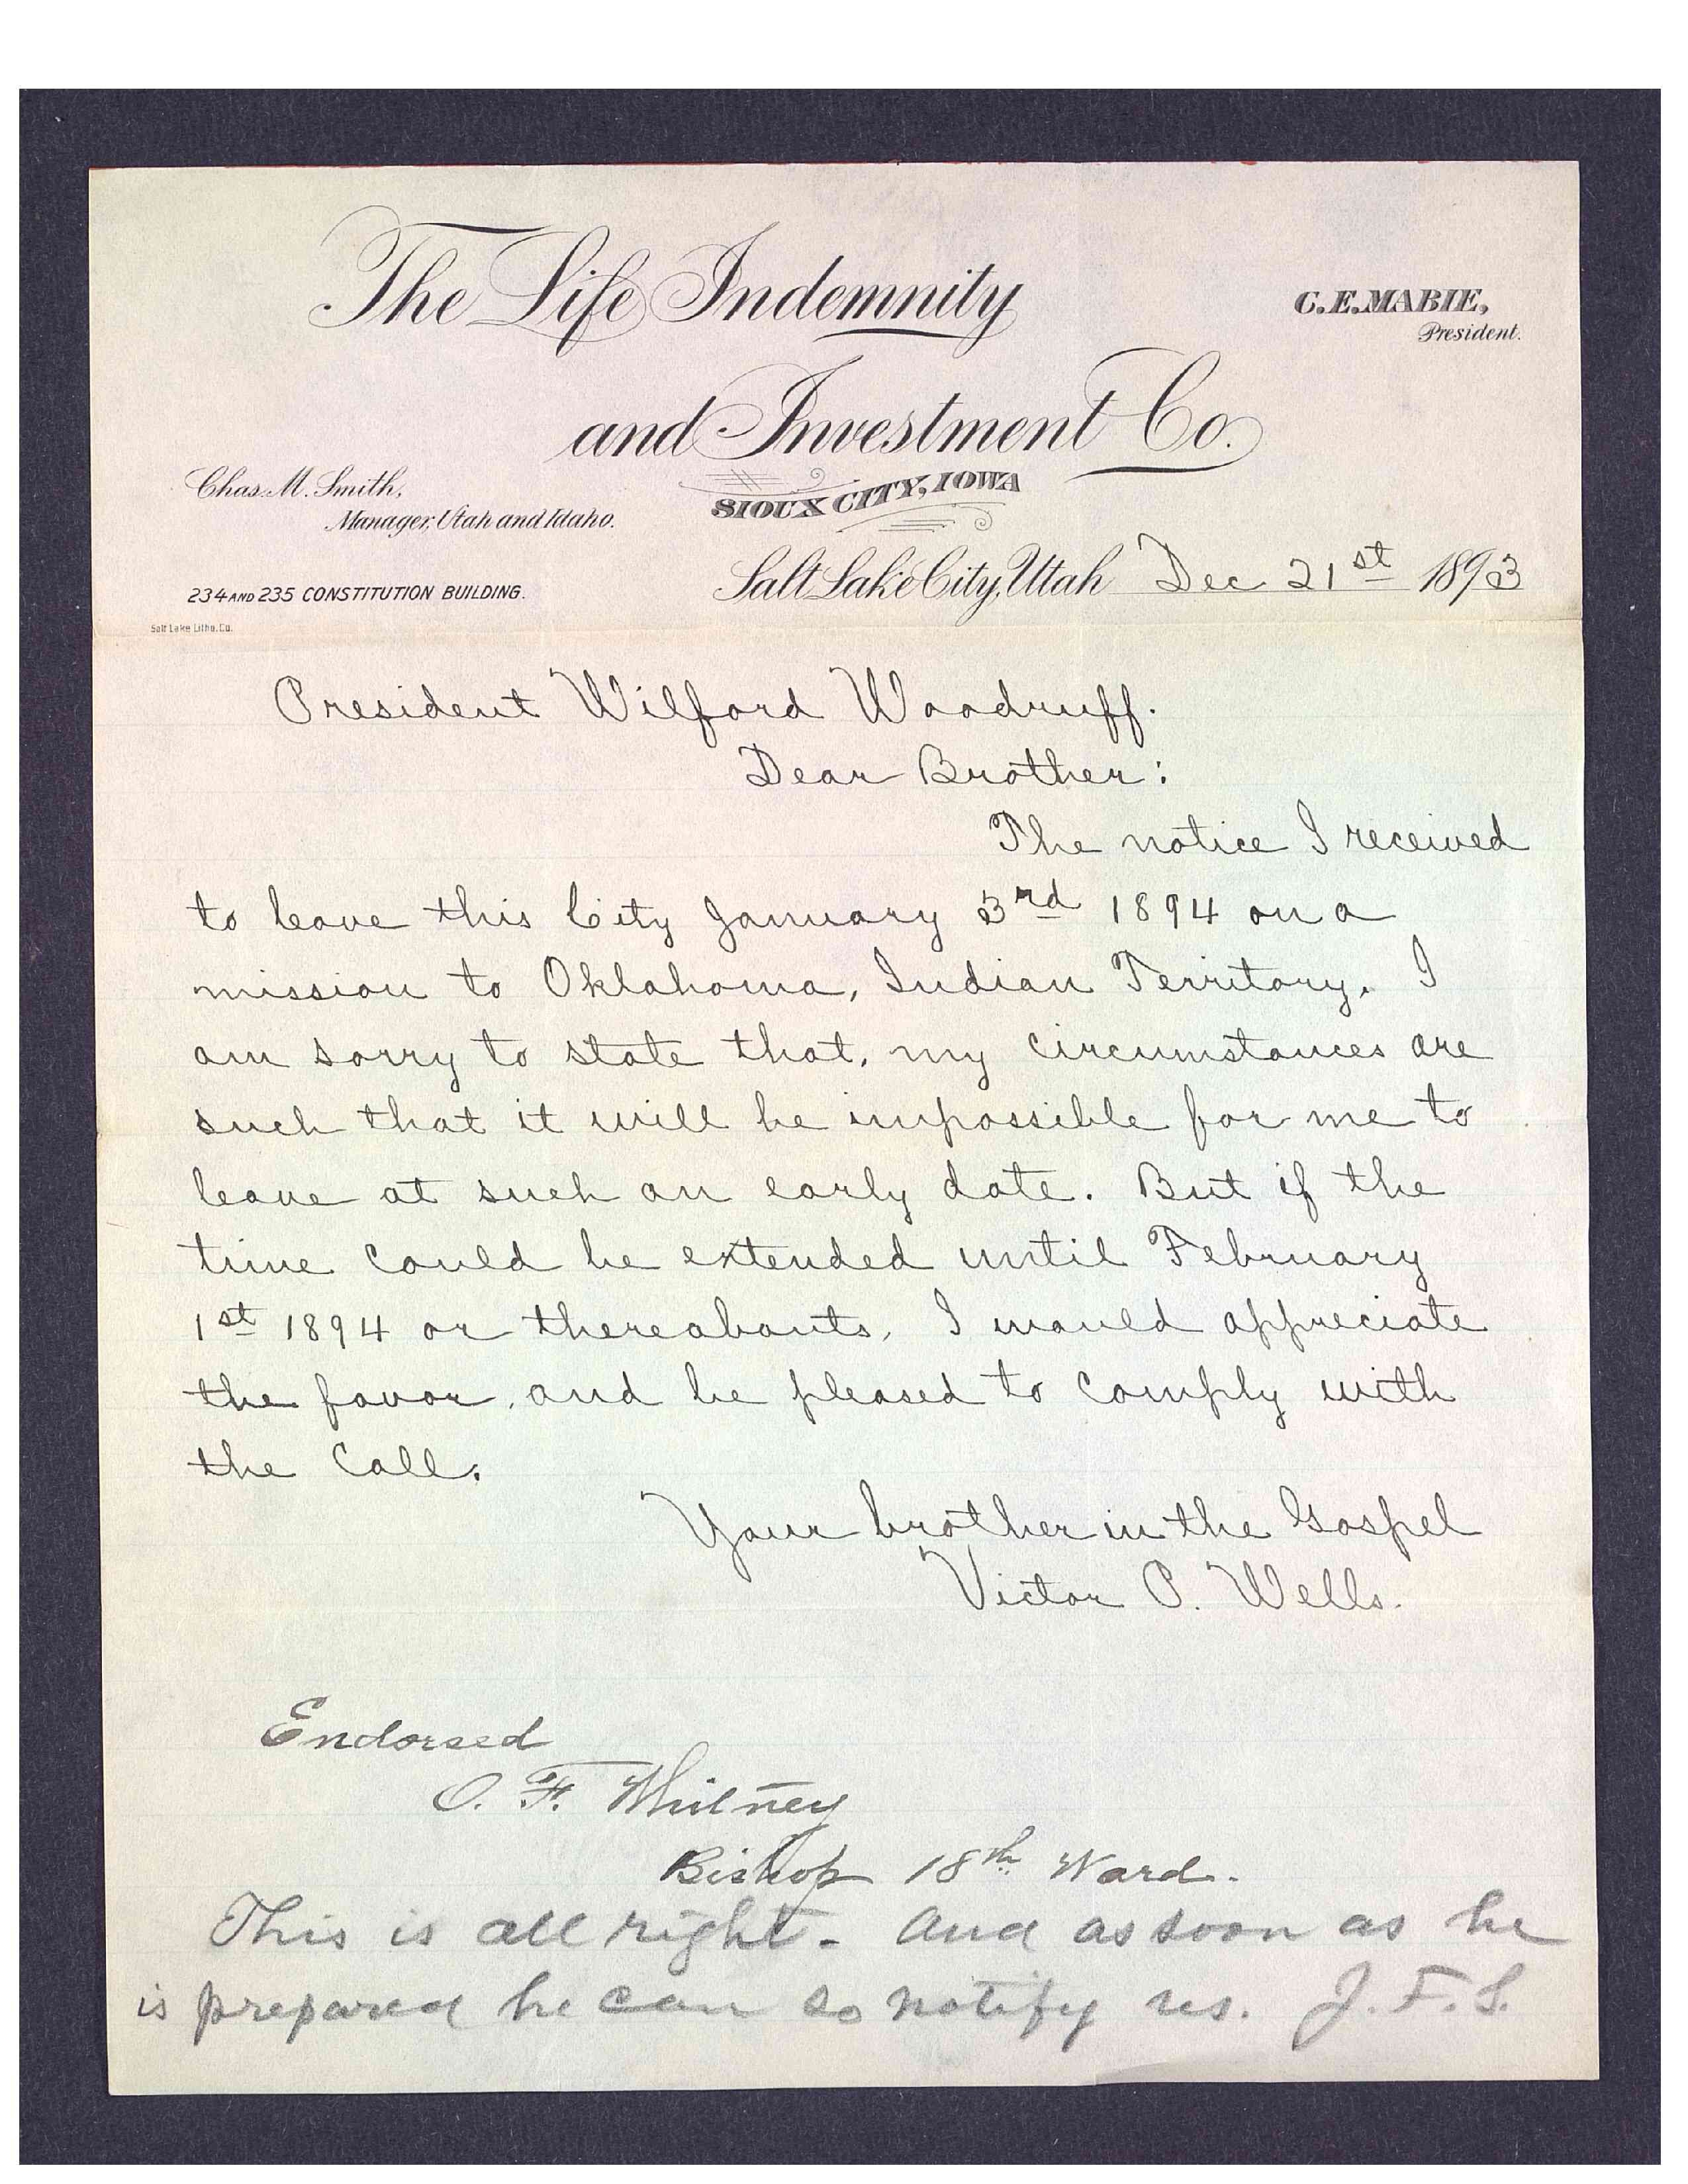 The Life Indemnity
C. E. MABIE,
President.
and Investment Co.
Chas. M. Smith,
Manager, Utah and Idaho.
SIOUX CITY, IOWA
234 AND 235 CONSTITUTION BUILDING.
Salt Lake City, Utah Dec 21st 1893
Salt Lake Litho. Co.
President Wilford Woodruff.
Dear Brother:
The notice I received
to leave this City January 3rd 1894 on a
mission to Oklahoma, Indian Territory. I
am sorry to state that, my circumstances are
such that it will be impossible for me to
leave at such an early date. But if the
time could be extended until February
1st 1894 or thereabouts, I would appreciate
the favor, and be pleased to comply with
the Call.
Your brother in the Gospel
Victor P. Wells.
Endorsed
O. F. Whitney
Bishop 18th Ward.
This is all right. And as soon as he
is prepared he can so notify us. J. F. S.